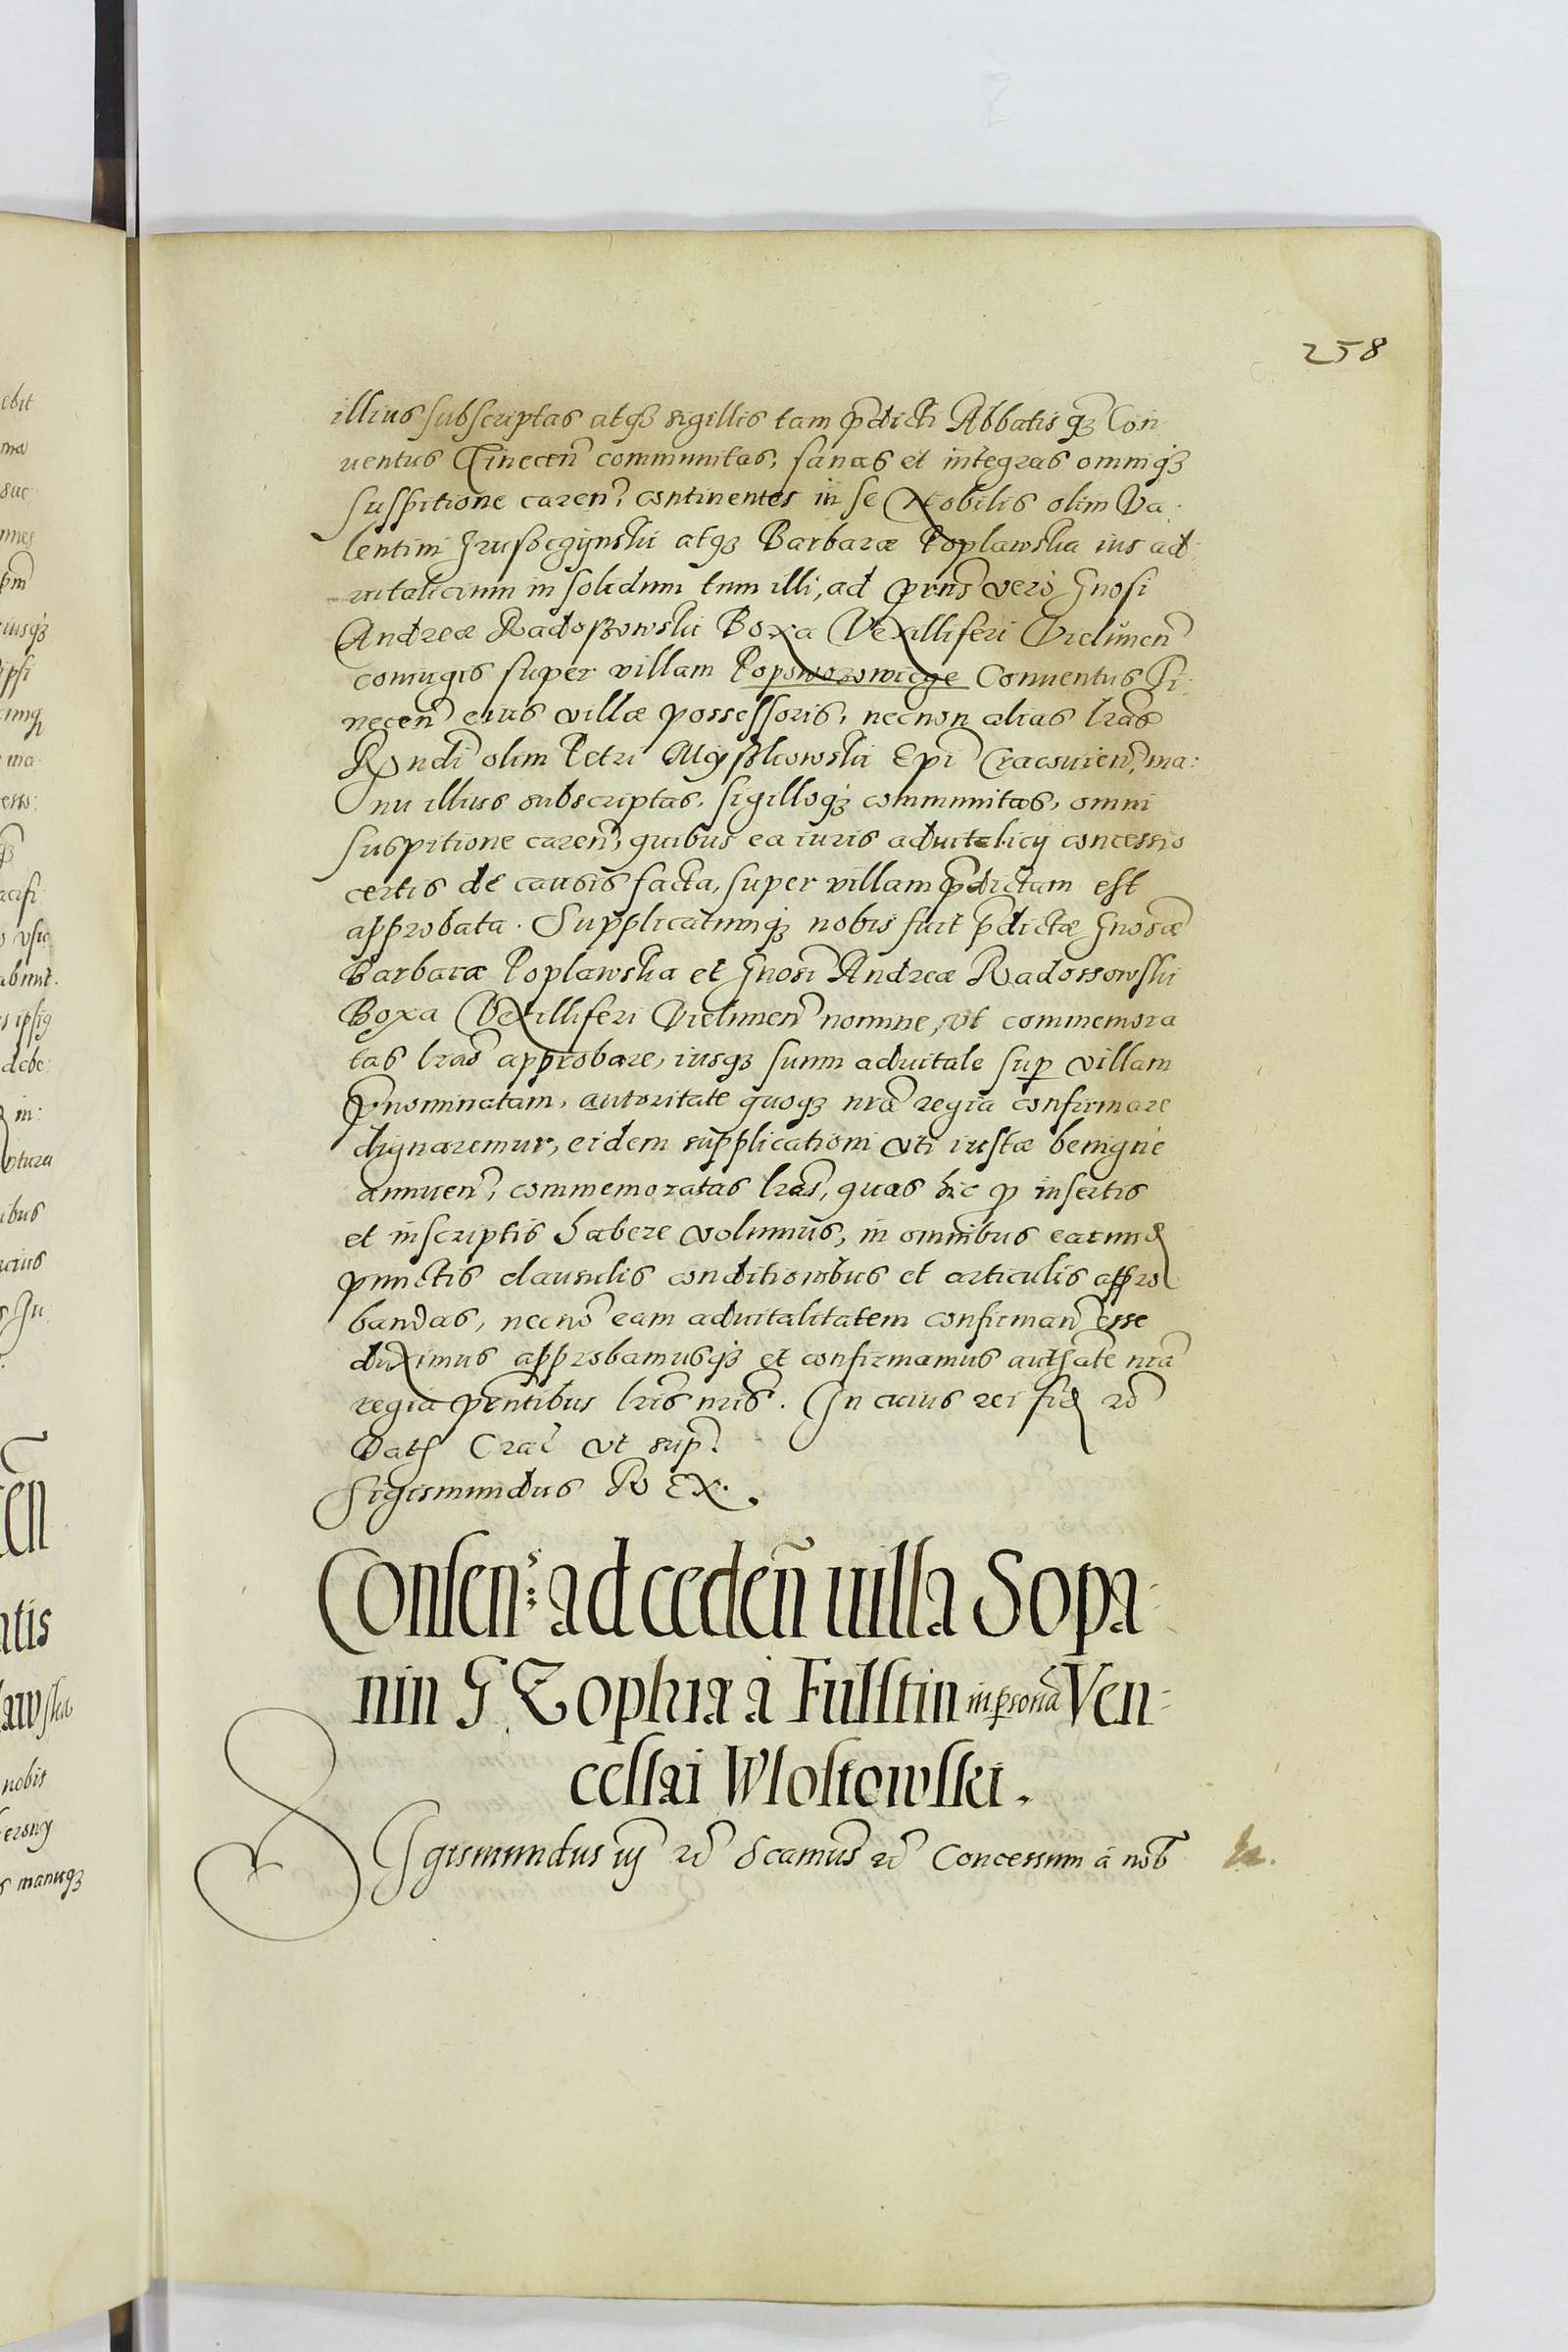 258
illius subscriptas atq3 sigillis tam p̃dicti Abbatis q3 Con
uentus Tinecen̄ communitas, sanas et integras omniq3
suspitione caren̄, continentes in se Nobilis olim Va:
lentini Gruszczÿnski atq3 Barbaræ Poplawska ius ad
uitalicium in solidum tum illi, ad p̃ns vero Gnosi
Andreæ Radoszowski Boxa Vexilliferi Vielunen̄
coniugis super villam Popowozowicze Conuentus Ti:
necen̄ eius villæ possessoris, necnon alias lr̃as
Rn̄di olim Petri Myszkowski Epī Cracouien̄, ma:
nu illius subscriptas, sigilloq3 communitas, omni
suspitione caren̄, quibus ea iuris aduitalicij concessio
certis de causis facta, super villam p̃dictam est
approbata. Supplicatumq3 nobis fuit p̃dictæ Gnosæ
Barbaræ Poplawska et Gnosi Andreæ Radossowski
Boxa Vexilliferi Vielunen̄ nomine, vt commemora
tas lr̃as approbare, iusq3 suum aduitale sup villam
p̃nominatam, autoritate quoq3 nr̃a regia confirmare
dignaremur, eidem supplicationi vti iustæ benigne
annuen̄, commemoratas lr̃as, quas hic p insertis
et inscriptis habere volumus, in omnibus earund
punctis clausulis conditionibus et articulis appro
bandas, necnō eam aduitalitatem confirman̄ esse
duximus approbamusq3 et confirmamus authate nr̃a
regia pn̄tibus lr̃is nr̃is. In cuius rei fid rc̃
Dat Crac̃ vt sup̃.
Sigismundus REX.
Consens ad ceden̄ uilla Sopa-
nin G Zophiæ a Fulstin in p̱sonā Ven=
ceslai Wlostowskei.
SIgismundus iij rc̃ Scamus rc̃ Concessum à nob̃